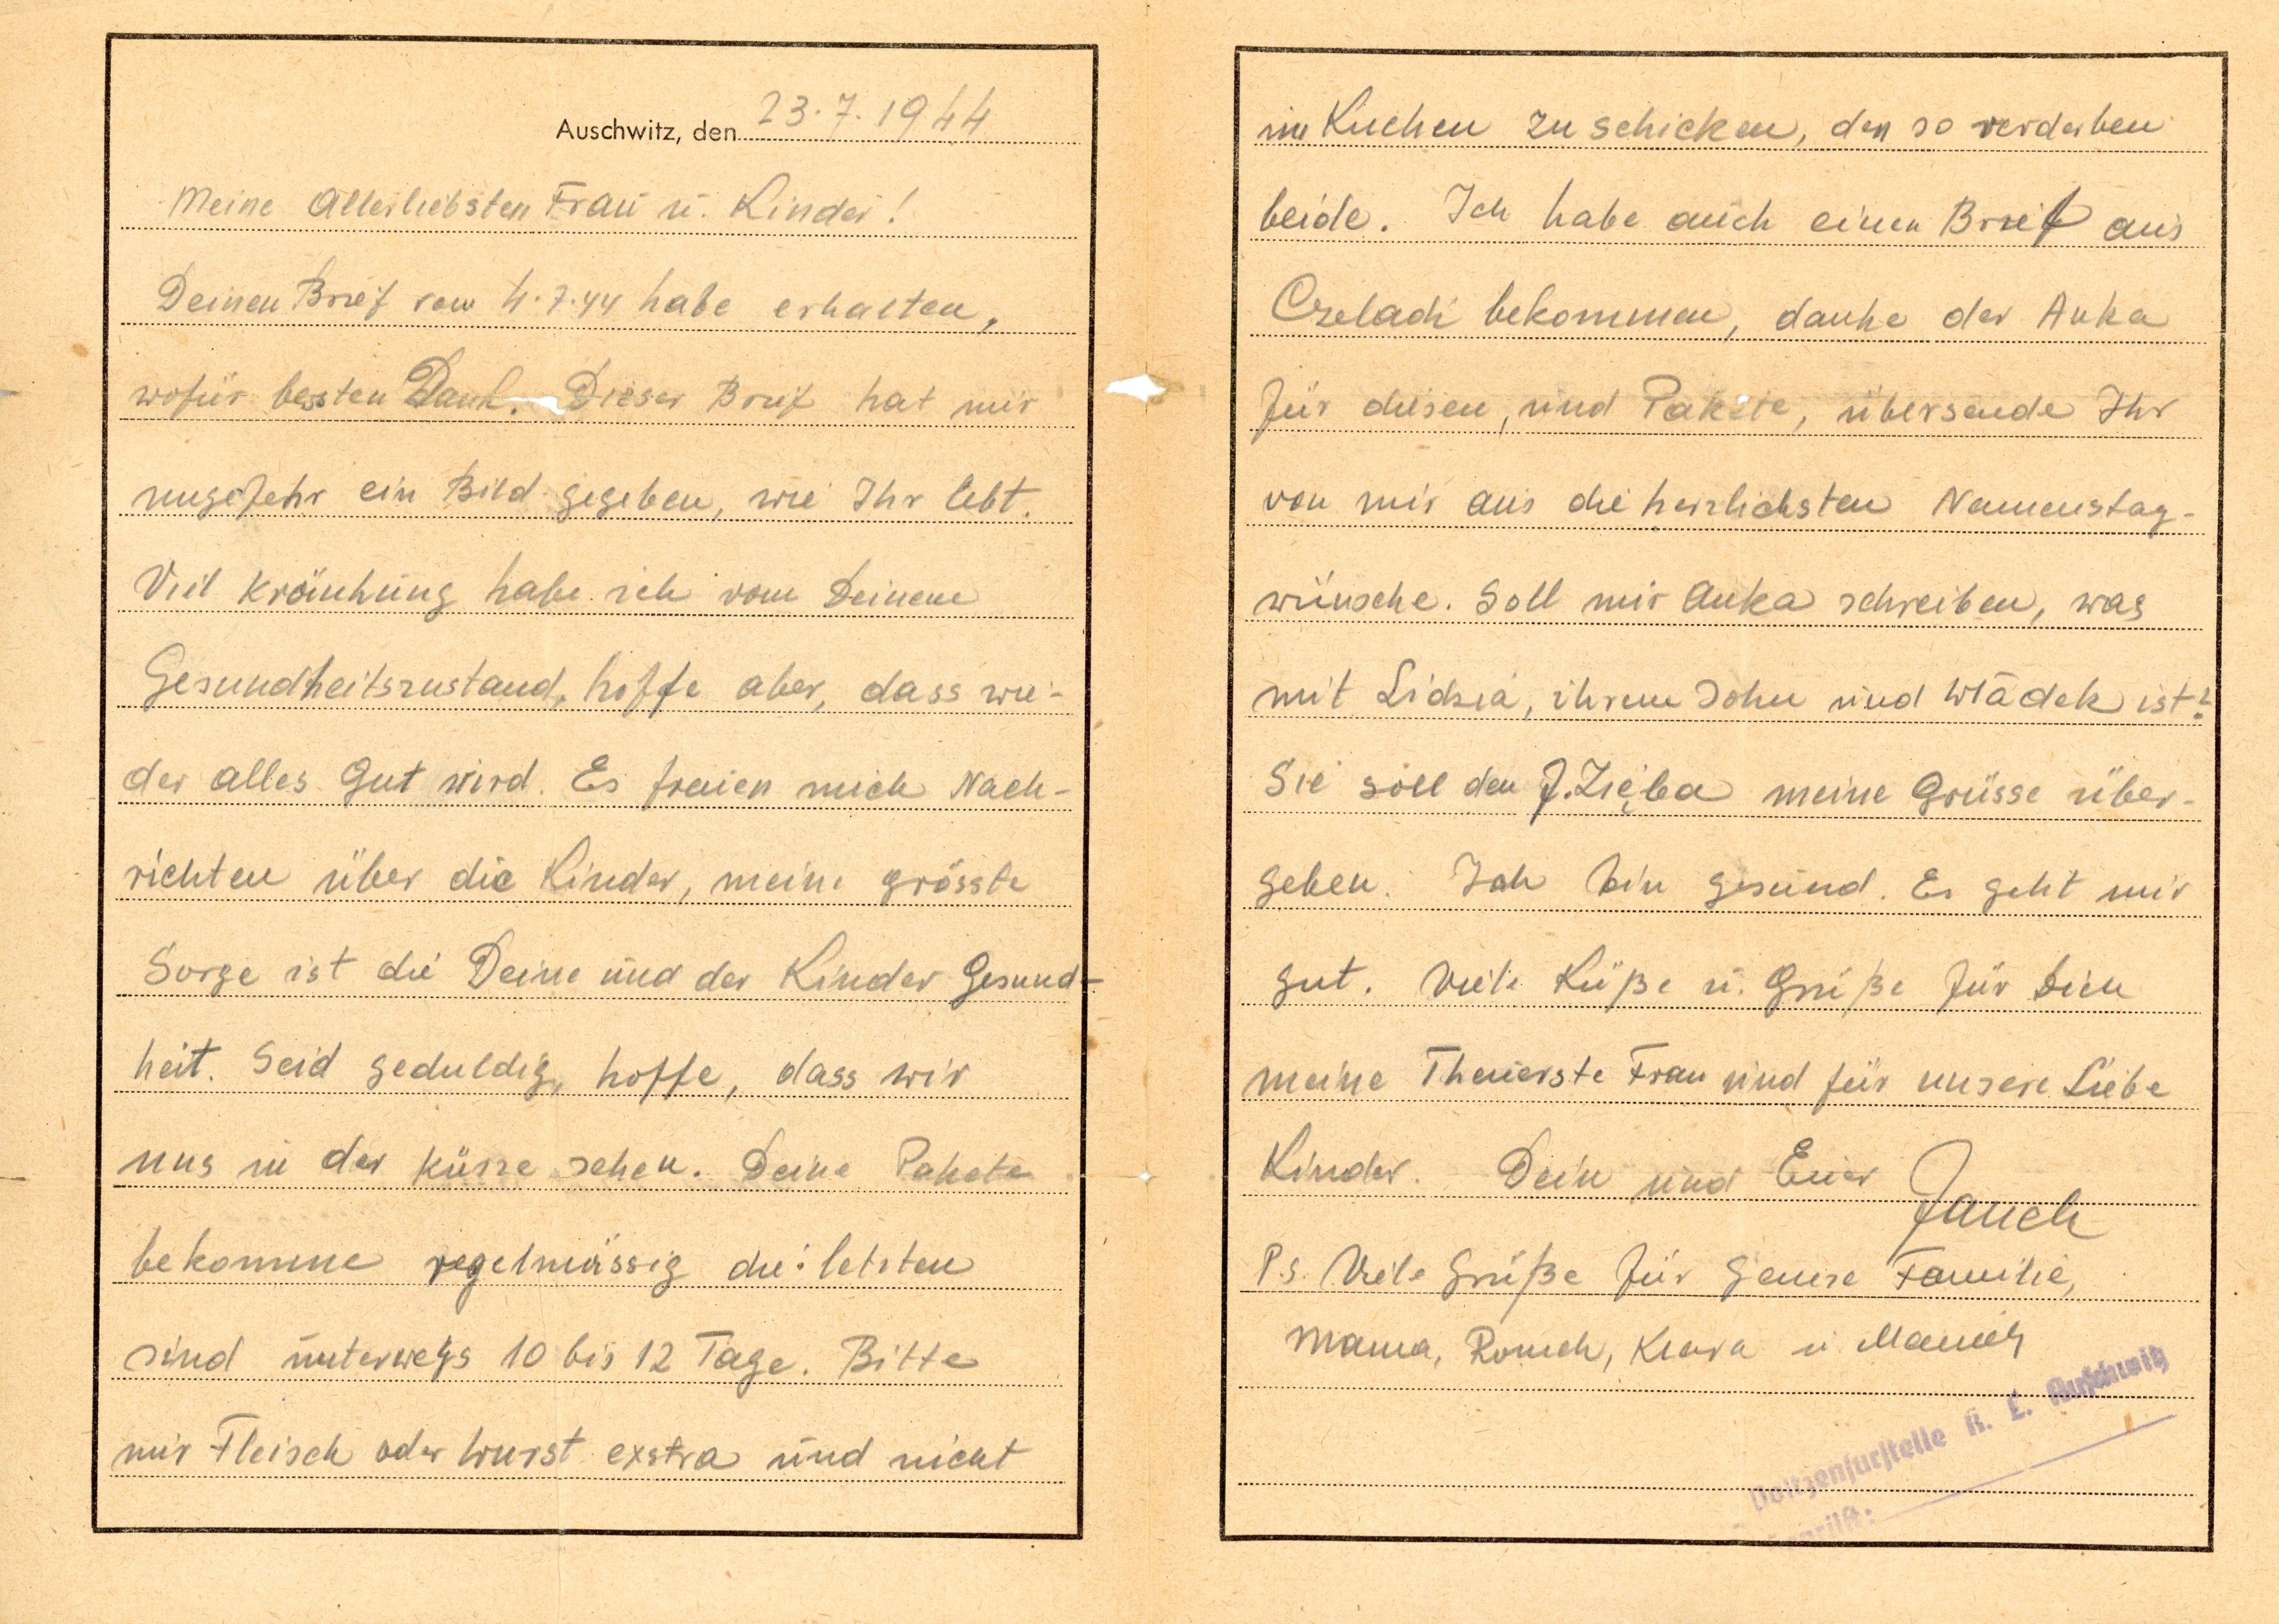 Auschwitz, den 23.7.1944
Meine Allerliebsten Frau u. Kinder!
Deinen Brief vom 4.7.44 habe erhalten,
wofür besten Dank. Dieser Brief hat mir
ungefehr ein Bild gegeben, wie Ihr lebt.
Viel Kränkung habe ich vom Deinem
Gesundheitszustand, hoffe aber, dass wie-
der alles Gut wird. Es freuen mich Nach-
richten über die Kinder, meine grösste
Sorge ist die Deine und der Kinder Gesund-
heit. Seid geduldig, hoffe, dass wir
uns in der kürze sehen. Deine Pakete
bekomme regelmässig die letzten
sind unterwegs 10 bis 12 Tage. Bitte
mir Fleisch oder Wurst exstra und nicht
im Kuchen zu schicken, den so verderben
beide. Ich habe auch einen Brief aus
Czeladz bekommen, danke der Anka
für diesen, und Pakete, übersende Ihr
von mir aus die herzlichsten Namenstag-
wünsche. Soll mir Anka schreiben, was
mit Lidzia, ihrem Sohn und Wladek ist?
Sie soll den J. Zięba meine Grüsse über-
geben. Ich bin gesund. Es geht mir
gut. Viele Küße u. Grüße für Dich
meine Theuerste Frau und für unsere Liebe
Kinder. Dein und Euer
Janek
P.s. Viele Grüße für Ganze Familie,
Mama, Romek, Klara u
Postzensurstelle K. L. Auschwitz